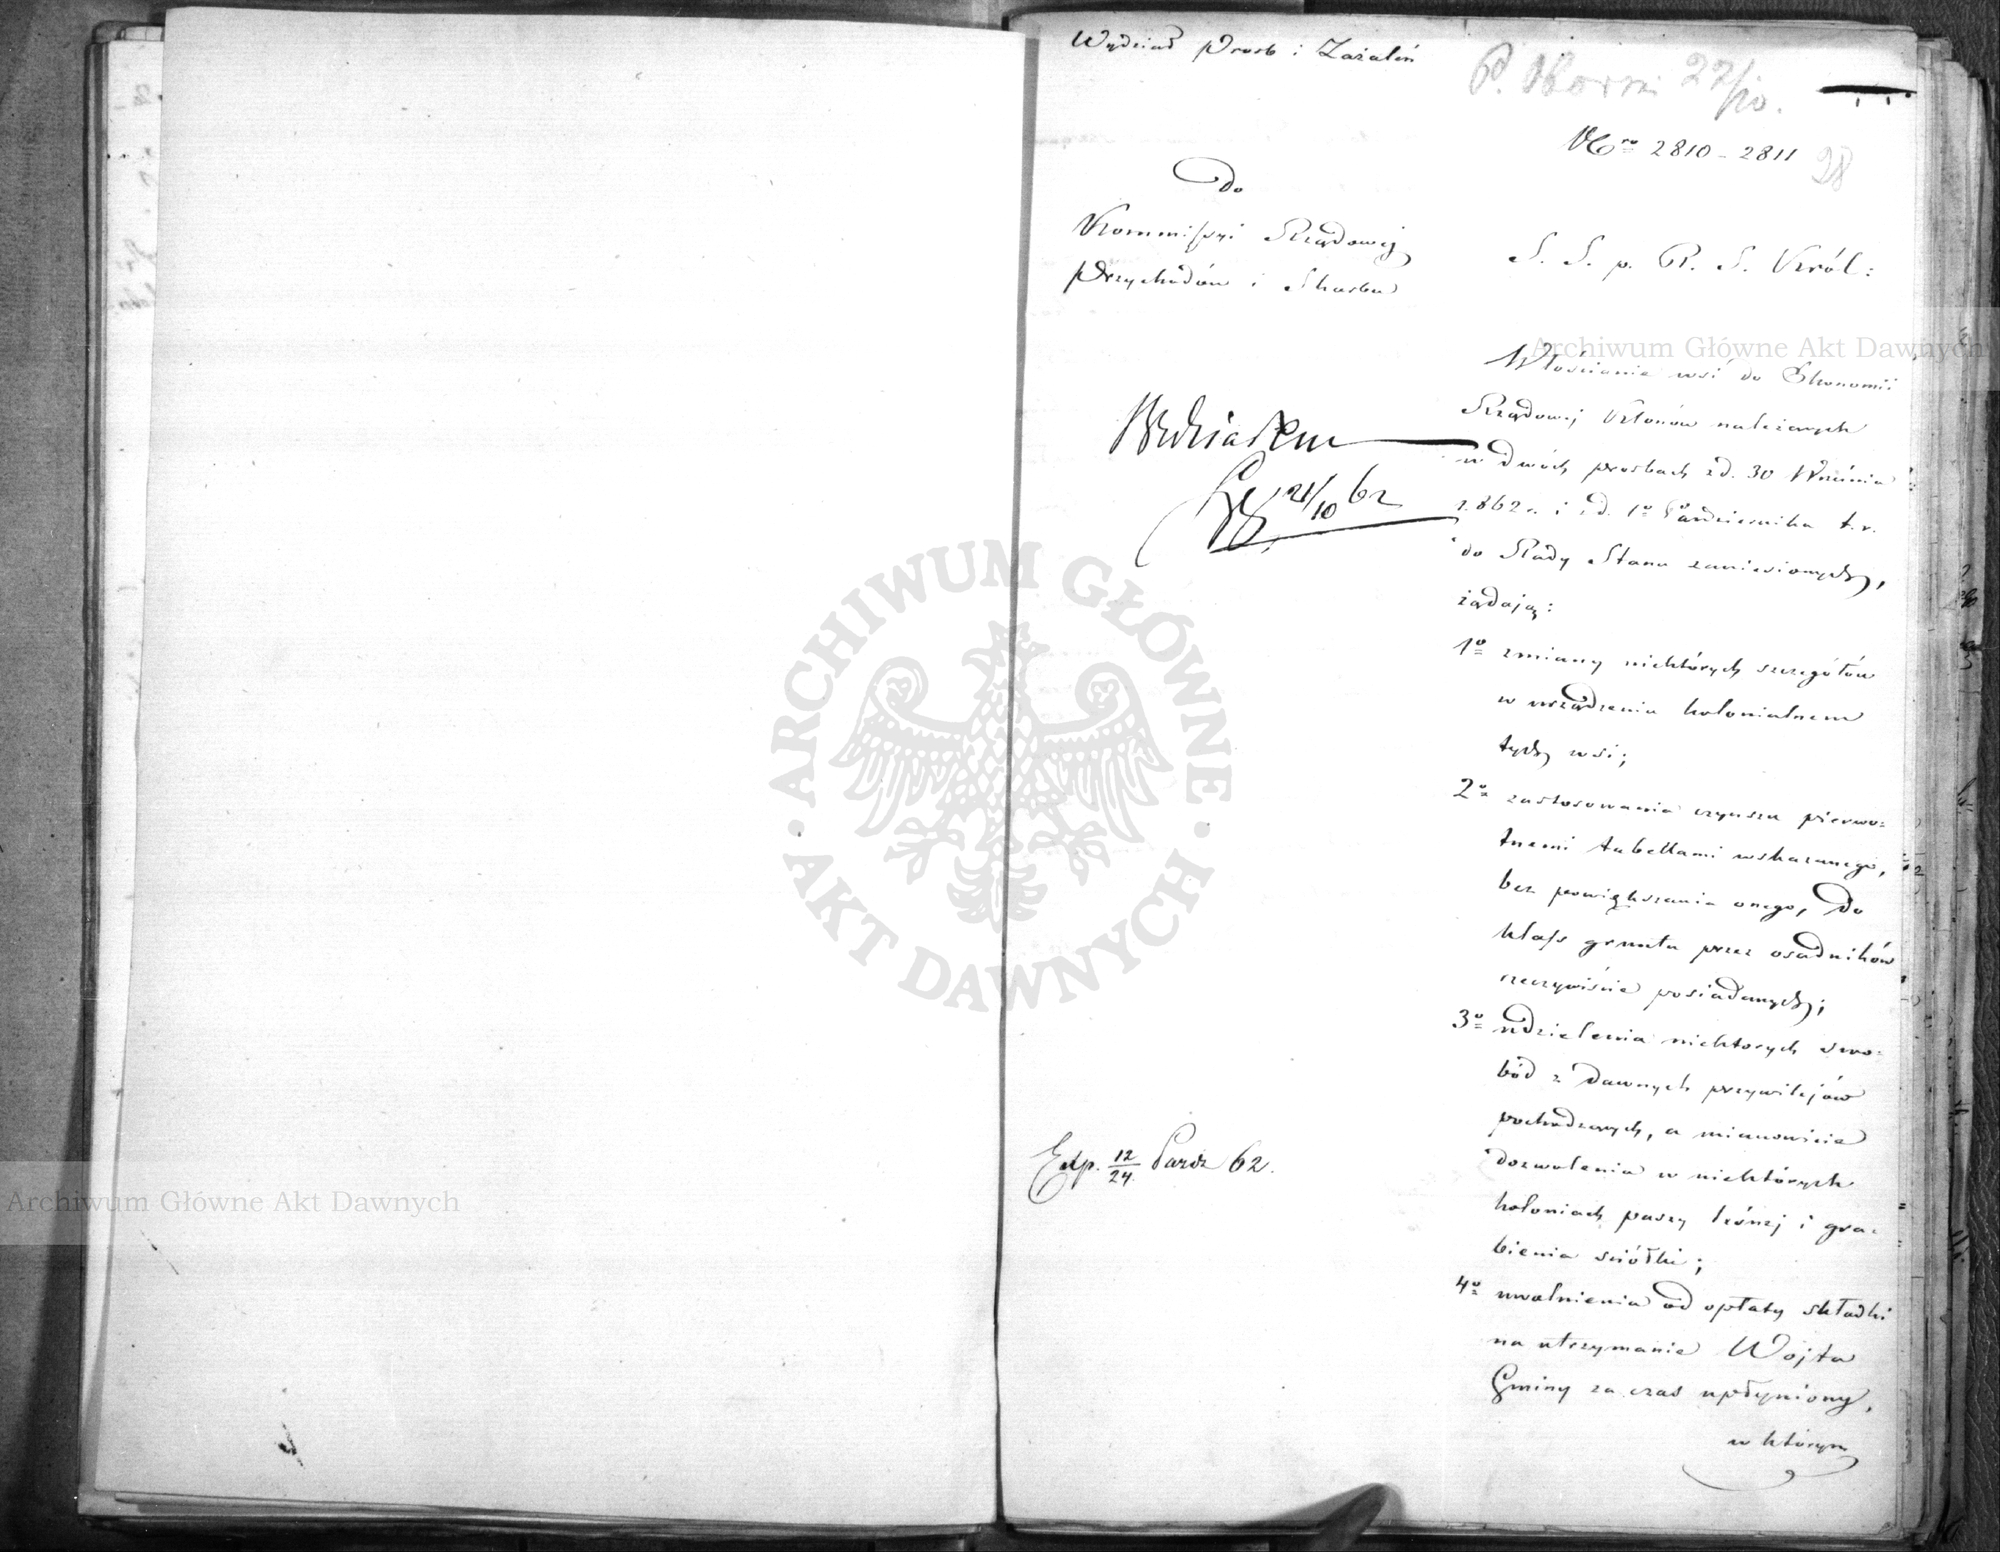 Wydział Prosb i Zażaleń
22/10.
Nro 2810 - 2811
28
Do
Kommissyi Rządowej
Przychodów i Skarbu
S. S. p. R. S. Król:
Włościanie wsi do Ekonomii
Rządowej Kłonów należących
w dwóch prosbach z d. 30 Września
1862 r. i z d. 1o Października t. r.
do Rady Stanu zaniesionych,
żądają:
1o zmiany niektórych szczegółów
w urządzeniu kolonialnem
tych wsi;
2o zastosowania czynszu pierwo-
tnemi tabellami wskazanego,
bez powiększania onego, do
klass gruntu przez osadników
rzeczywiście posiadanych;
3o udzielenia niektorych swo-
bód z dawnych przywilejów
pochodzących, a mianowicie
dozwolenia w niektórych
koloniach paszy leśnej i gra-
bienia sciółki;
4o uwolnienia od opłaty składki
na utrzymanie Wojta
Gminy za czas upłyniony,
w którym
21/10 62
Exp. 12/24 Paźdz 62.
Archiwum Główne Akt Dawnych
Archiwum Główne Akt Dawnych
ARCHIWUM GŁÓWNE
AKT DAWNYCH